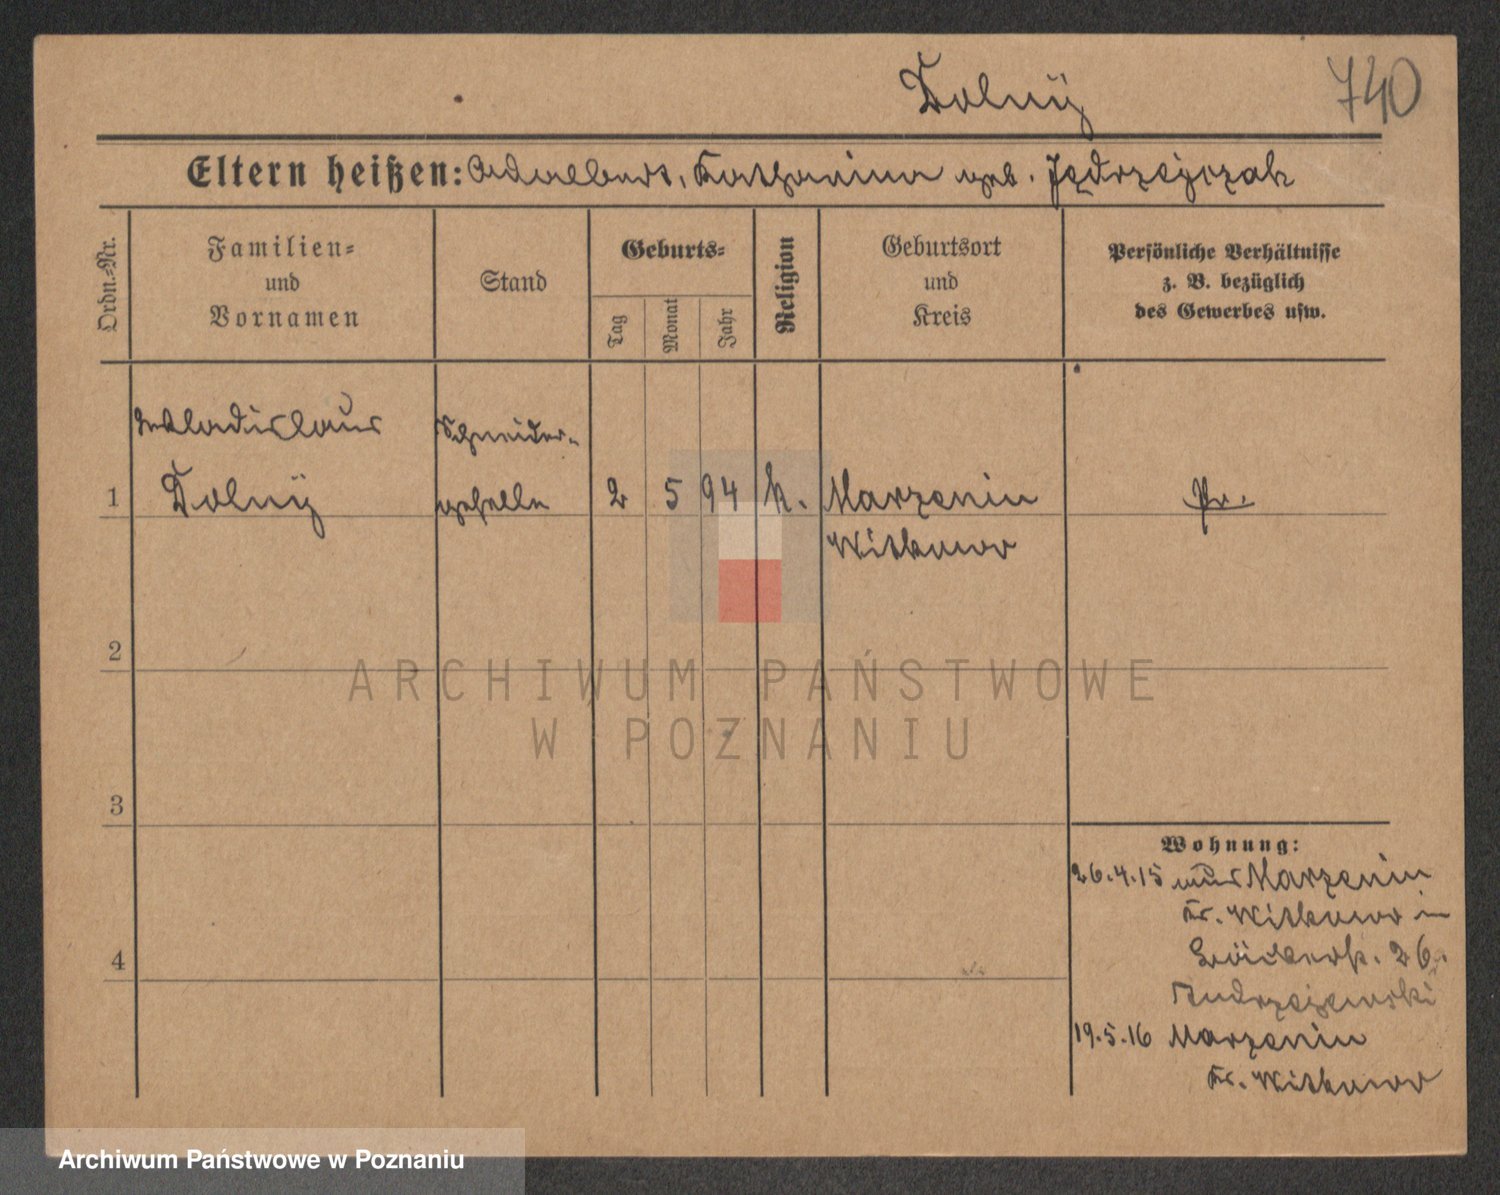 Dolny
740
Eltern heißen: Adalbert, Katharina geb. Jędrzejczak
Ordn.-Nr.
Familien-
und
Vornamen
Stand
Geburts-
Tag
Monat
Jahr
Religion
Geburtsort
und
Kreis
Persönliche Verhältnisse
z. B. bezüglich
des Gewerbes usw.
Wladislaus
Schneider-
1
Dolny
geselle
2
5
94
k.
Marzenin
Pr.
Witkowo
2
ARCHIWUM PAŃSTWOWE
W POZNANIU
3
Wohnung:
26.4.15 aus Marzenin
Kr. Witkowo in
26.
4
19.5.16 Marzenin
Kr. Witkowo
Archiwum Państwowe w Poznaniu